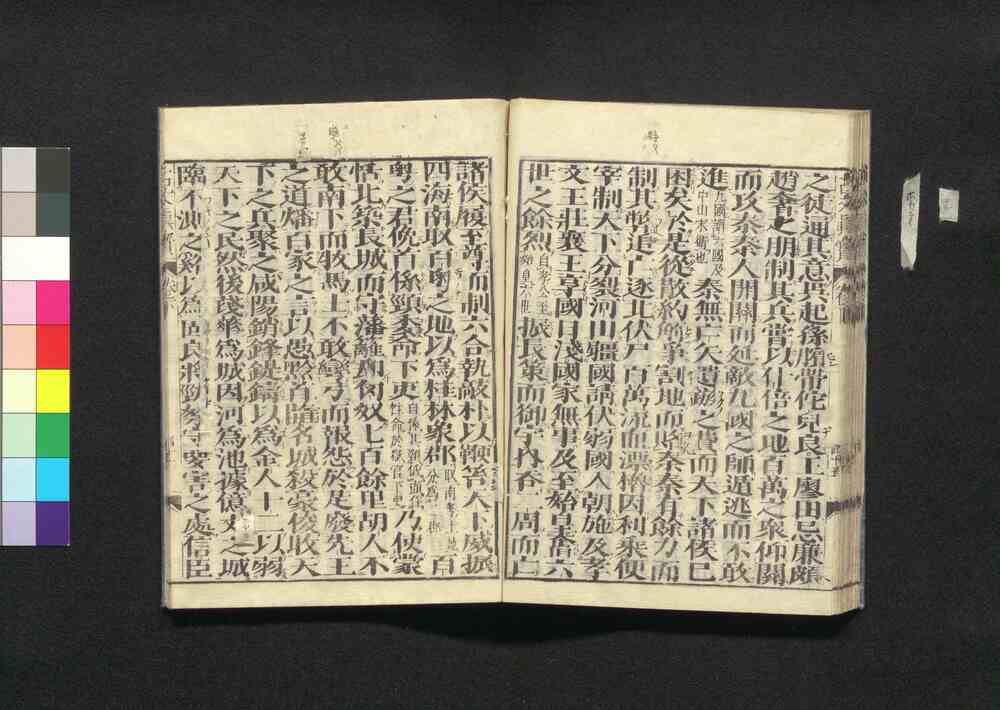 之徒通其意吳起孫臏帶佗兒良王廖田忌廉頗
趙奢之朋制其兵嘗以什倍之地百萬之衆仰關
而攻秦秦人開關而延敵九國之師遁逃而不敢
進九國謂六國及中山宋衛也秦無亡矢遺鏃之費而天下諸侯已
困矣於是從散約解爭割地而賂秦秦有餘力而
制其弊追亡逐北伏尸百萬流血漂櫓因利乘便
宰制天下分裂河山彊國請伏弱國入朝施及孝
文王莊襄王享國日淺國家無事及至始皇奮六
世之餘烈振長策而御宇內吞二周而亡
諸侯履至尊而制六合執敲朴以鞭笞天下威振
四海南取百粵之地以爲桂林象郡百
粵之君俛首係頸委命下吏乃使蒙
恬北築長城而守藩籬卻匈奴七百餘里胡人不
敢南下而牧馬士不敢彎弓而報怨於是廢先王
之道燔百家之言以愚黔首隳名城殺豪俊收天
下之兵聚之咸陽銷鋒鍉鑄以爲金人十二以弱
天下之民然後踐華爲城因河爲池據億丈之城
臨不測之谿以爲固良將勁弩守要害之處信臣